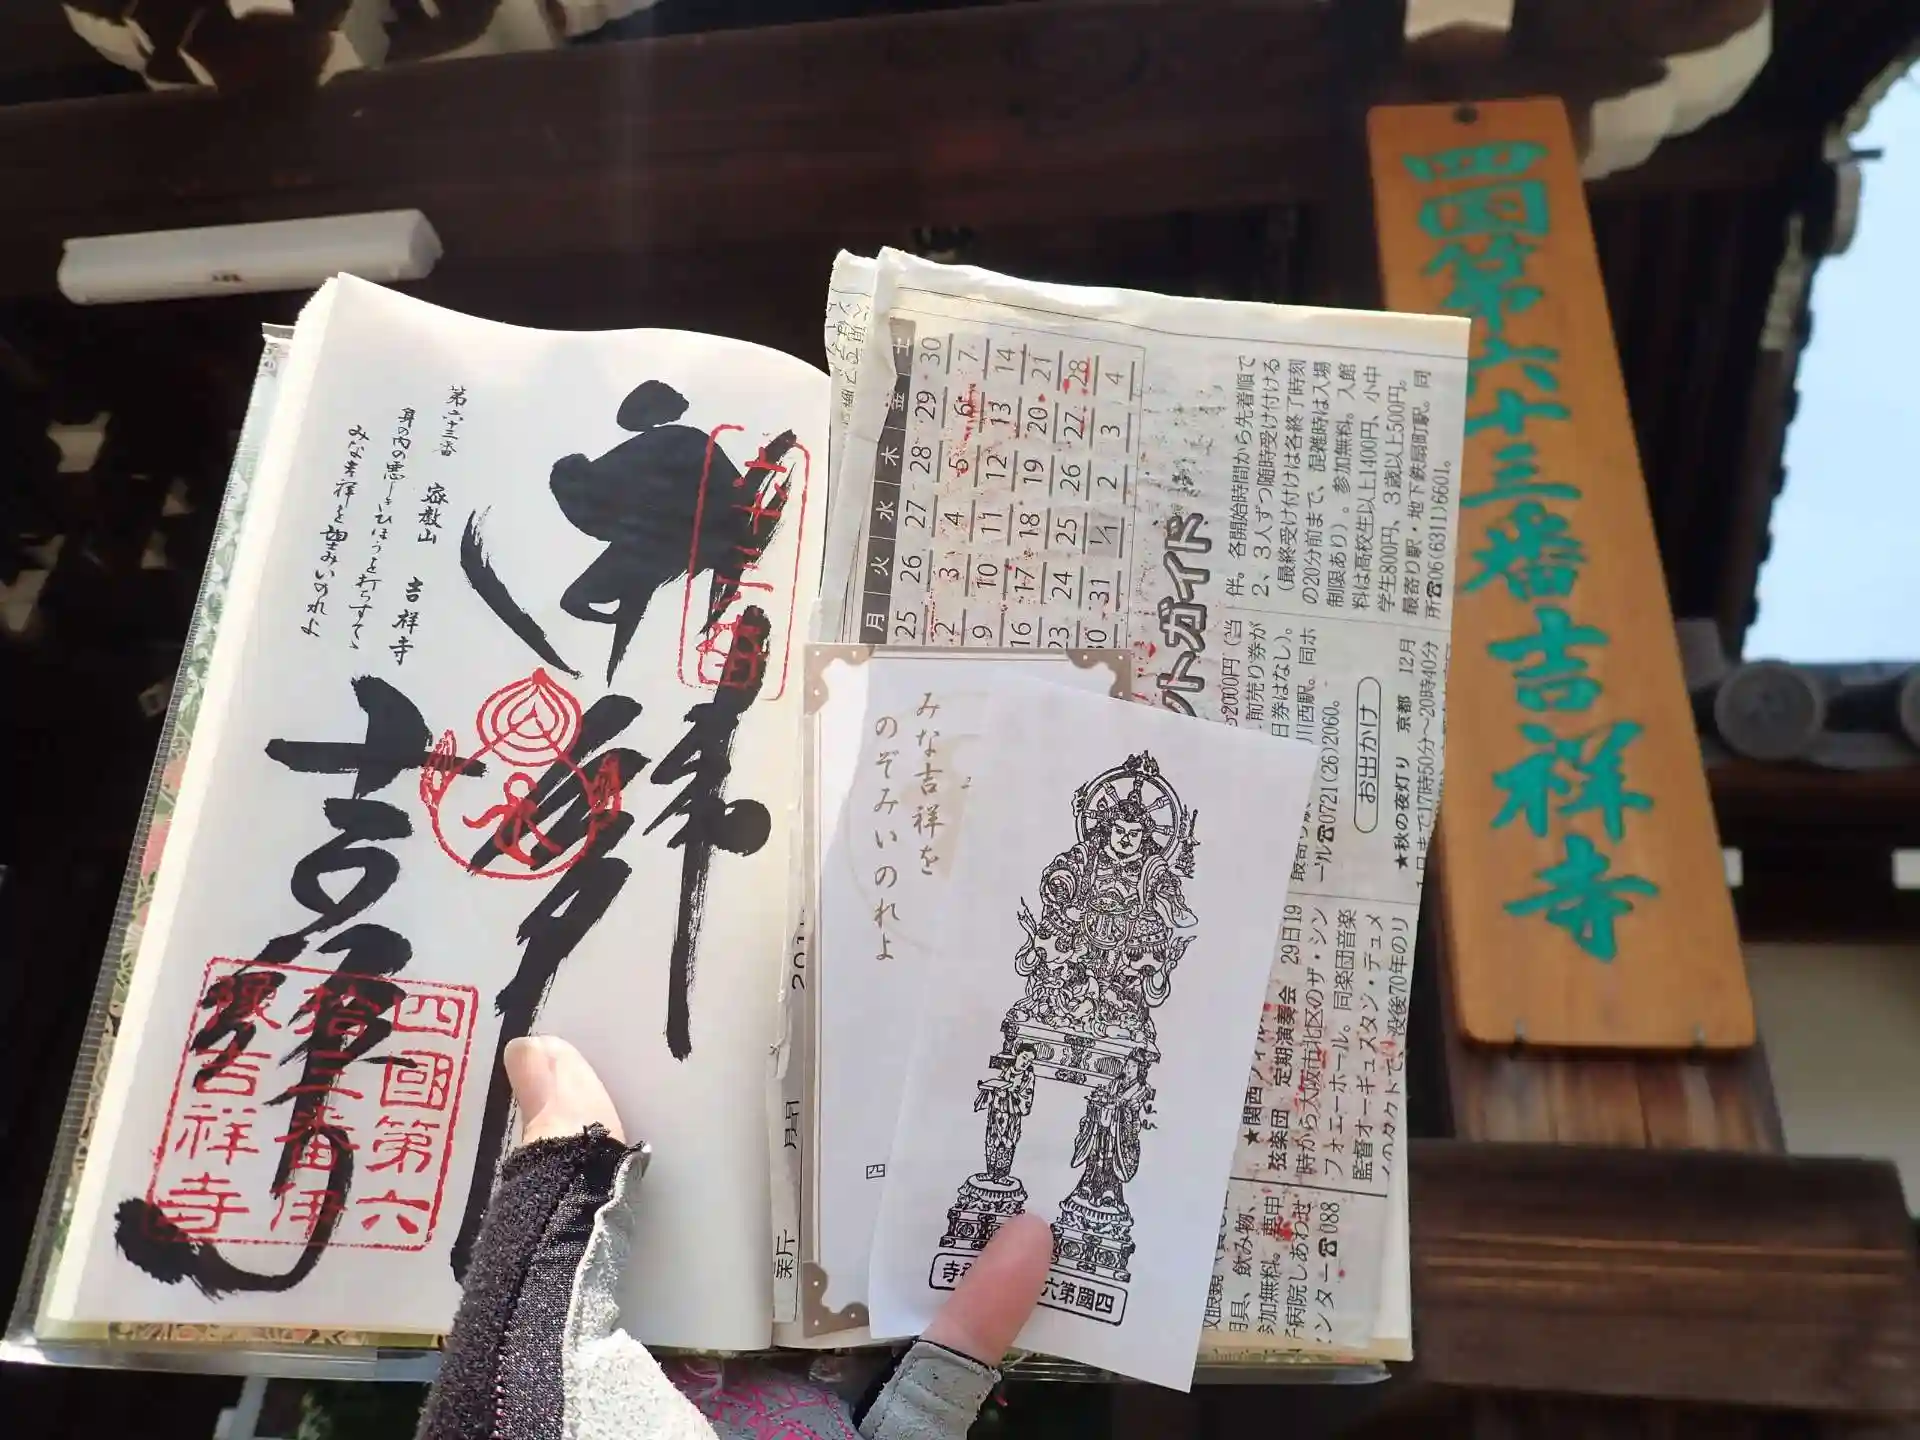 四国第六十三番吉祥寺
第六十三番 密教山 吉祥寺
身の内の悪しきひほうを打ちすてて
みな吉祥を望みいのれよ
吉祥寺
四國第六
拾三番伊
豫吉祥寺
みな吉祥を
のぞみいのれよ
四國第六
寺
月 火 水 木 金 土
25 26 27 28 29 30
2 3 4 5 6 7
9 10 11 12 13 14
16 17 18 19 20 21
23 24 25 26 27 28
30 31 1/1 2 3 4
ットガイド
伴。各開始時間から先着順で
2、3人ずつ随時受け付ける
(最終受け付けは各終了時刻
の20分前まで、混雑時は入場
制限あり)。参加無料。入館
料は高校生以上1400円、小中
学生800円、3歳以上500円。
最寄り駅・地下鉄扇町駅。同
所☎06(6311)6601。
2000円(当
前売り券が
日券はなし)。
川西駅。同ホ
ール☎0721(26)2060。
お出かけ
★秋の夜灯り 京都 12月
1日まで17時50分~20時40分
弦楽団 定期演奏会 29日19
時から大阪市北区のザ・シン
フォニーホール。同楽団音楽
監督オーギュスタン・デュメ
没後70年のリ
具、飲み物、
参加無料。要申
病院しあわせ
ンター☎088